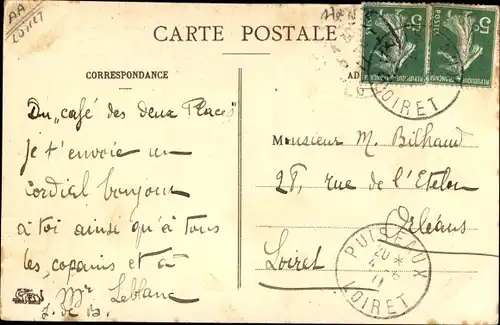 AA
LOIRET
CARTE POSTALE
CORRESPONDANCE
AD
5c
POSTES
RÉPUBLIQUE FRANÇAISE
5c
POSTES
RÉPUBLIQUE FRANÇAISE
LOIRET
Du "café des deux Places"
Je t'envoie un
cordial bonjour
à toi ainsi qu'à tous
les copains et à
Mr Leblanc
J. de B.
Monsieur M. Bilhaud
27, rue de l'Etelon
Orléans
Loiret
PUISEAUX
20 *
11
LOIRET